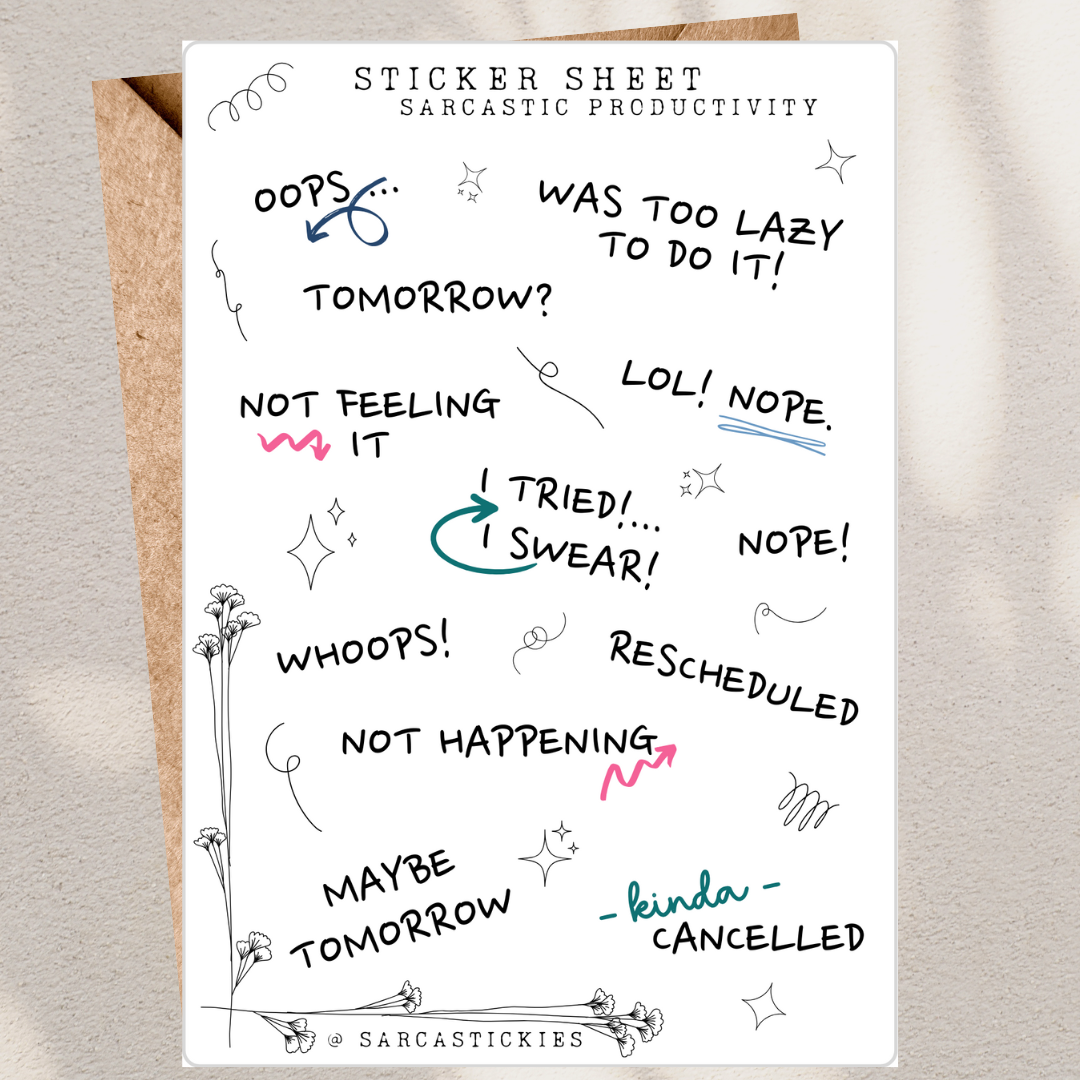 STICKER SHEET
SARCASTIC PRODUCTIVITY
OOPS...
WAS TOO LAZY
TO DO IT!
TOMORROW?
LOL! NOPE.
NOT FEELING
IT
I TRIED!...
I SWEAR!
NOPE!
WHOOPS!
RESCHEDULED
NOT HAPPENING
MAYBE
TOMORROW
- kinda -
CANCELLED
@ SARCASTICKIES